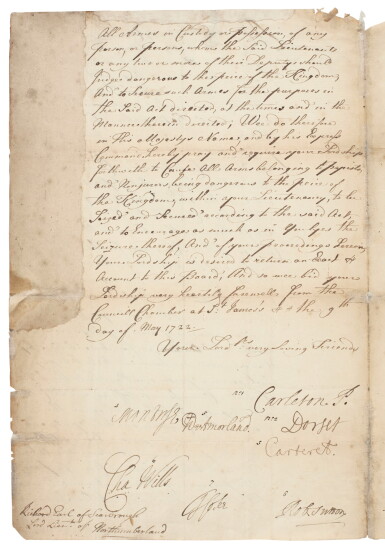 All Armes in Custody or possession of any
person, or persons, whom the said Lieutenants
or any two or more of their Deputys should
Judge dangerous to the peace of the Kingdom,
And to Secure such Armes for the purposes in
the said Act directed, at the times and in the
Manner therein directed; Wee do therefore
in His Majestys Name, and by his Express
Command, hereby pray and require your Lordship
forthwith to Cause All Arms belonging to Papists,
and Nonjurors, being dangerous to the peace of
the Kingdome, within your Lieutenancy, to be
Seized and Secured according to the said Act,
and to Encourage as much as in You lyes the
Seizure thereof, And of your proceedings herein
Your Lordship is desired to return an Exact
Account to this Board; And so wee bid your
Lordship very heartily farewell, from the
Councill Chamber at St. James's the 9th
day of May 1722.
Your Lordps very Loving Friends
Carleton P.
Montrose Westmorland Dorset
Carteret
Cha Wills
Rob Sutton
Richard Earl of Scarborough
Lord Lieut. of Northumberland